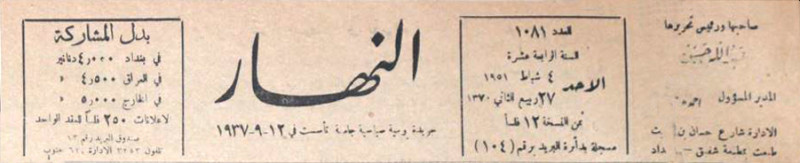 صاحبها ورئيس تحريرها
عبدالله حسين
المدير المسؤول
الادارة شارع حسان بن
طبعت بمطبعة شفيق
العدد ١٠٨١
السنة الرابعة عشرة
الاحد
٤ شباط ١٩٥١
٢٧ ربيع الثاني ١٣٧٠
ثمن النسخة ١٢ فلساً
مسجلة بدائرة البريد برقم (١٠٤)
النهار
جريدة يومية سياسية جامعة تأسست في ١٢-٩-١٩٣٧
بدل المشاركة
في بغداد ٤٫٠٠٠ دنانير
في العراق ٤٫٥٠٠ »
في الخارج ٥٫٠٠٠ »
لاعلانات ٢٥٠ فلساً للعقد الواحد
صندوق البريد رقم ٦٣
تلفون ٣٢٤٣ الادارة